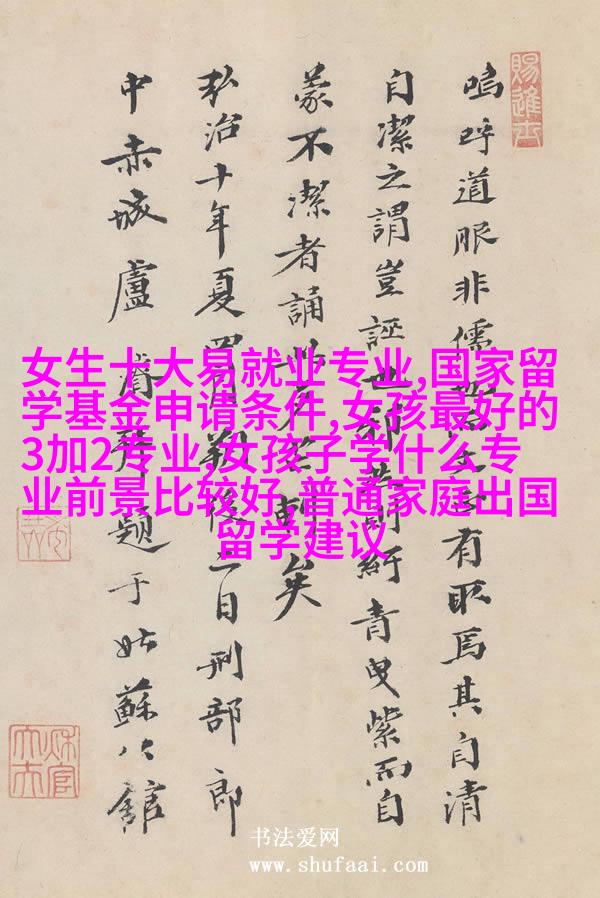 嗚呼道服非儒有取焉其自清
自潔之謂豈誣世紆青曳紫而自
蒙不潔者誦此矣
弘治十年夏後二日刑部郎
中赤城盧題于姑蘇公館
女生十大易就业专业,国家留
学基金申请条件,女孩最好的
3加2专业,女孩子学什么专
业前景比较好,普通家庭出国
留学建议
书法爱网
www.shufaai.com